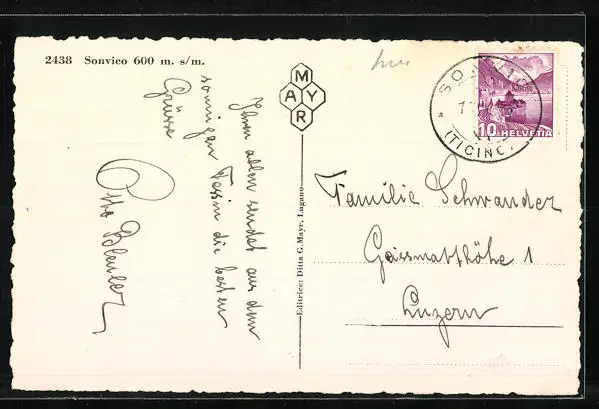 2438 Sonvico 600 m. s/m.
MAYR
Ihnen allen sendet aus dem
sonnigen Tessin die besten
Grüsse
Otto Bleuler
Editrice: Ditta G. Mayr, Lugano
(TICINO)
10 HELVETIA
Familie Schwander
Geissmatthöhe 1
Luzern